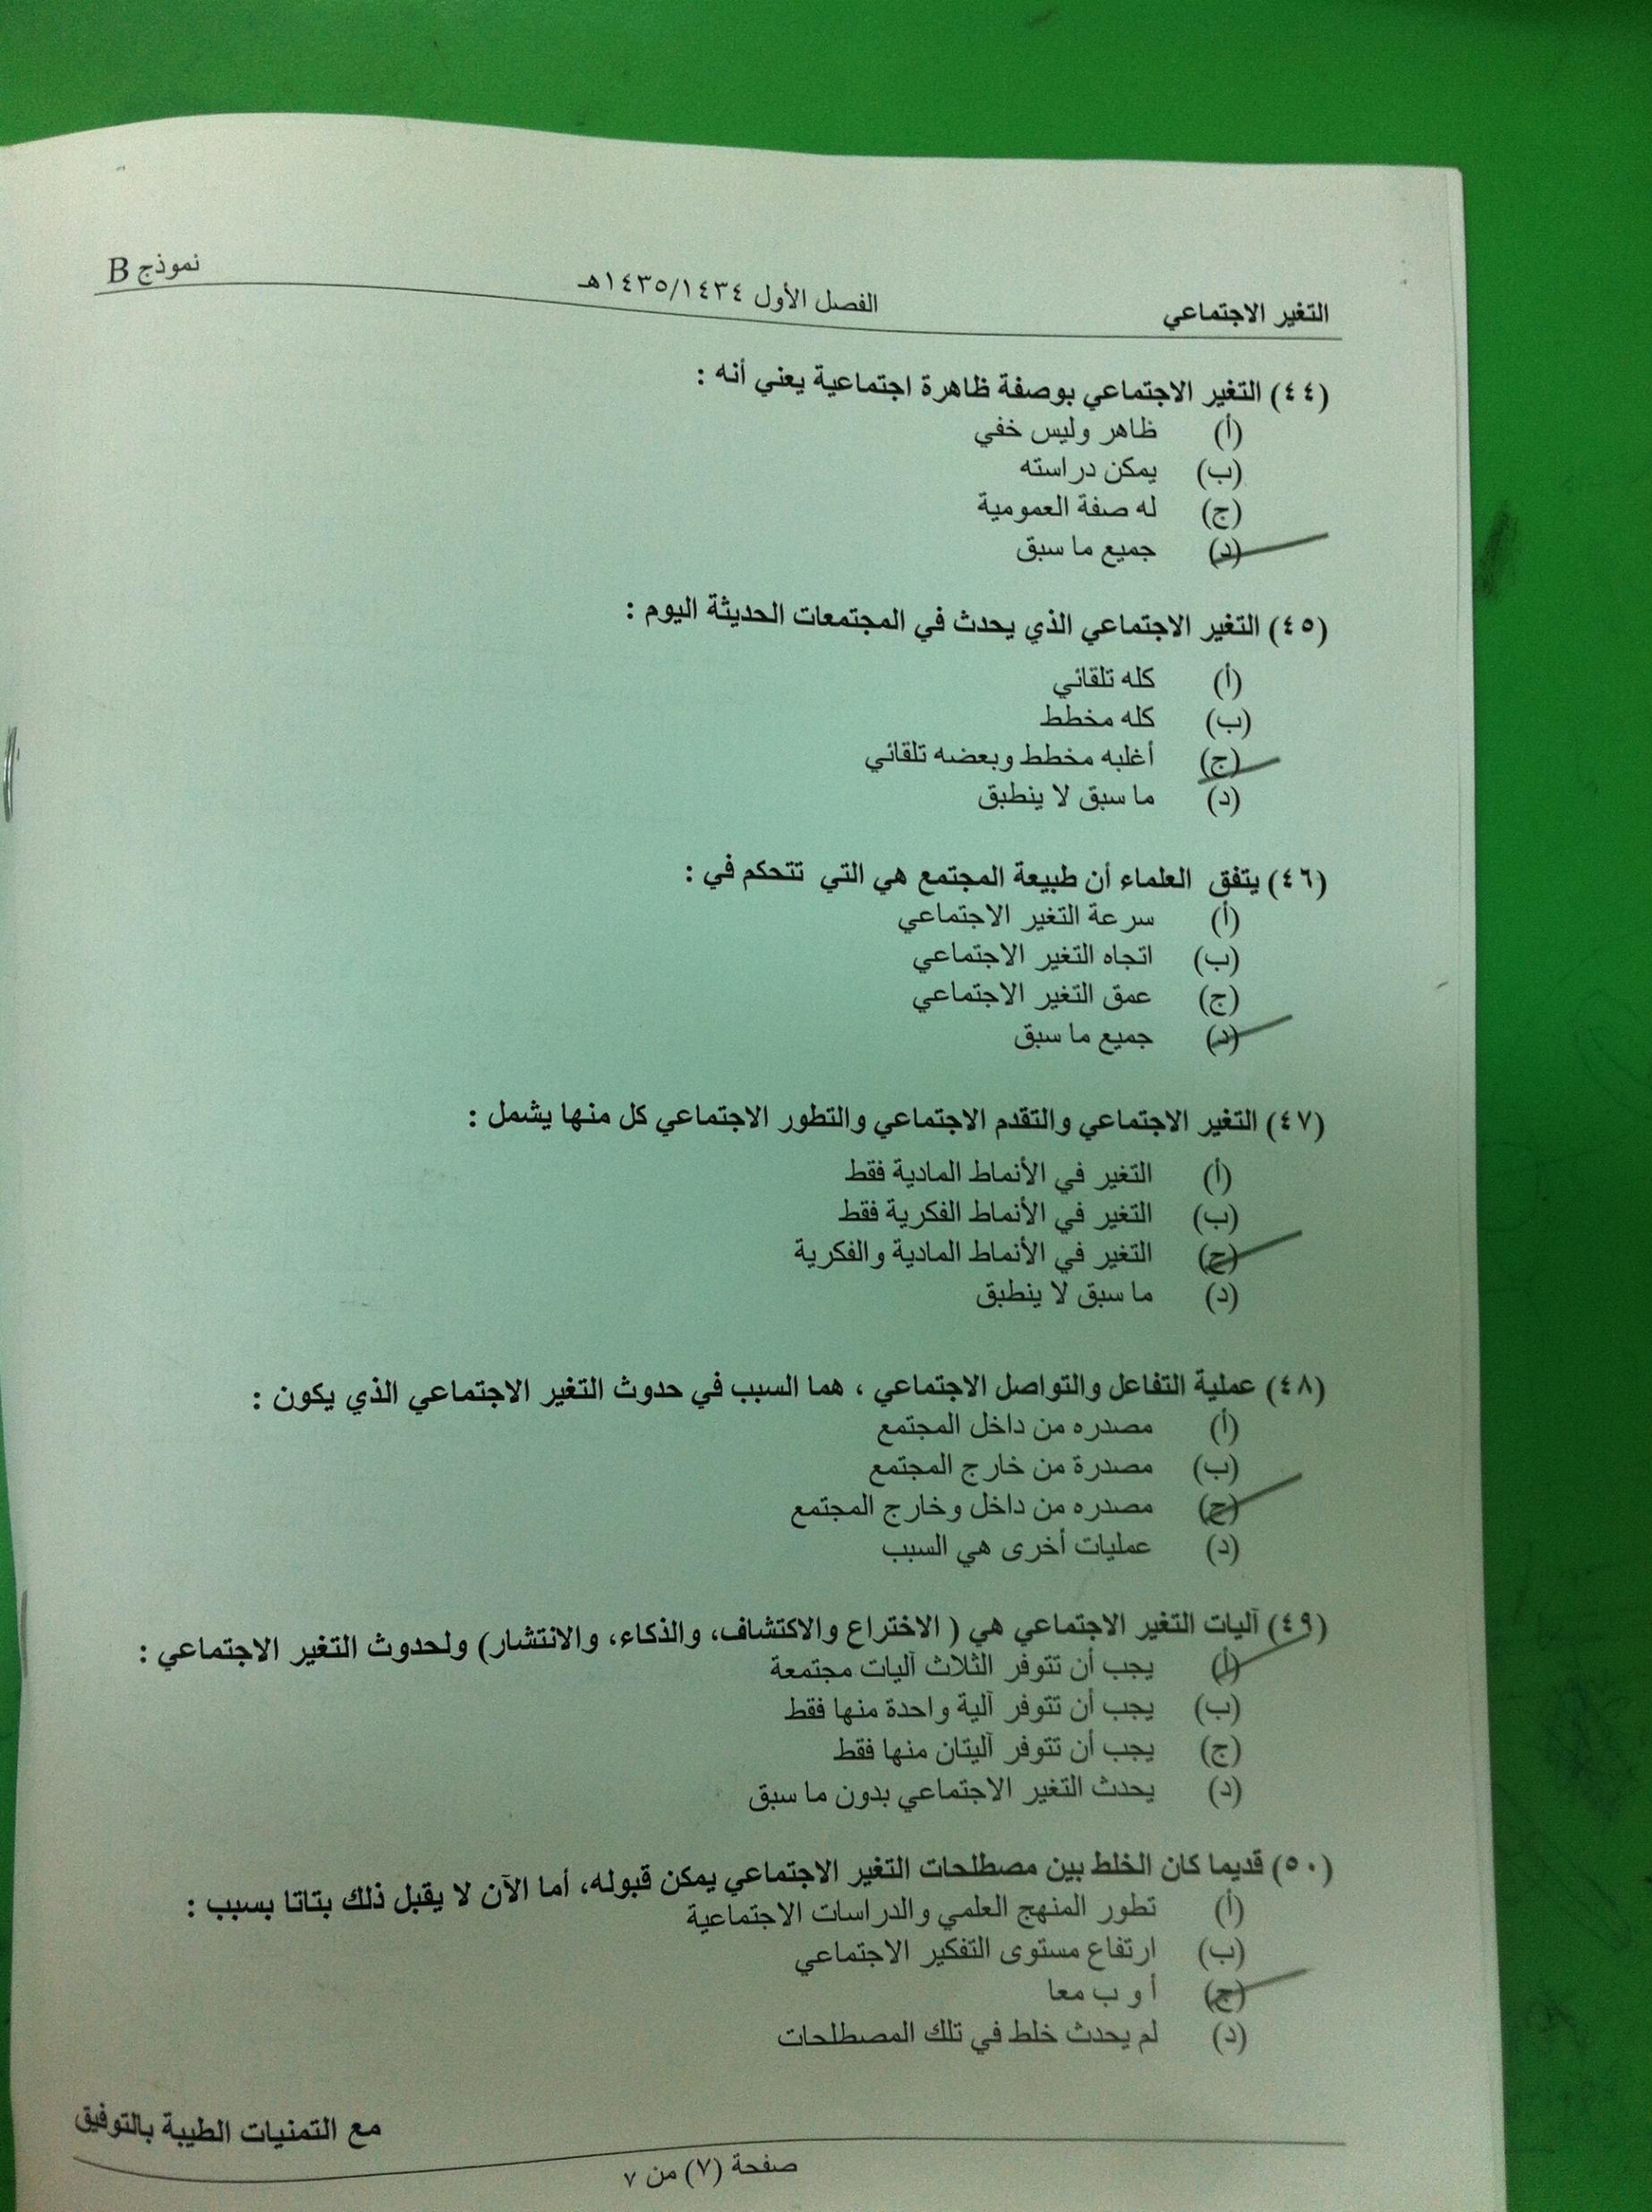 التغير الاجتماعي
الفصل الأول ١٤٣٤/١٤٣٥هـ
نموذج B
(٤٤) التغير الاجتماعي بوصفة ظاهرة اجتماعية يعني أنه :
(أ) ظاهر وليس خفي
(ب) يمكن دراسته
(ج) له صفة العمومية
(د) جميع ما سبق
(٤٥) التغير الاجتماعي الذي يحدث في المجتمعات الحديثة اليوم :
(أ) كله تلقائي
(ب) كله مخطط
(ج) أغلبه مخطط وبعضه تلقائي
(د) ما سبق لا ينطبق
(٤٦) يتفق العلماء أن طبيعة المجتمع هي التي تتحكم في :
(أ) سرعة التغير الاجتماعي
(ب) اتجاه التغير الاجتماعي
(ج) عمق التغير الاجتماعي
(د) جميع ما سبق
(٤٧) التغير الاجتماعي والتقدم الاجتماعي والتطور الاجتماعي كل منها يشمل :
(أ) التغير في الأنماط المادية فقط
(ب) التغير في الأنماط الفكرية فقط
(ج) التغير في الأنماط المادية والفكرية
(د) ما سبق لا ينطبق
(٤٨) عملية التفاعل والتواصل الاجتماعي ، هما السبب في حدوث التغير الاجتماعي الذي يكون :
(أ) مصدره من داخل المجتمع
(ب) مصدرة من خارج المجتمع
(ج) مصدره من داخل وخارج المجتمع
(د) عمليات أخرى هي السبب
(٤٩) آليات التغير الاجتماعي هي ( الاختراع والاكتشاف، والذكاء، والانتشار) ولحدوث التغير الاجتماعي :
(أ) يجب أن تتوفر الثلاث آليات مجتمعة
(ب) يجب أن تتوفر آلية واحدة منها فقط
(ج) يجب أن تتوفر آليتان منها فقط
(د) يحدث التغير الاجتماعي بدون ما سبق
(٥٠) قديما كان الخلط بين مصطلحات التغير الاجتماعي يمكن قبوله، أما الآن لا يقبل ذلك بتاتا بسبب :
(أ) تطور المنهج العلمي والدراسات الاجتماعية
(ب) ارتفاع مستوى التفكير الاجتماعي
(ج) أ و ب معا
(د) لم يحدث خلط في تلك المصطلحات
مع التمنيات الطيبة بالتوفيق
صفحة (٧) من ٧